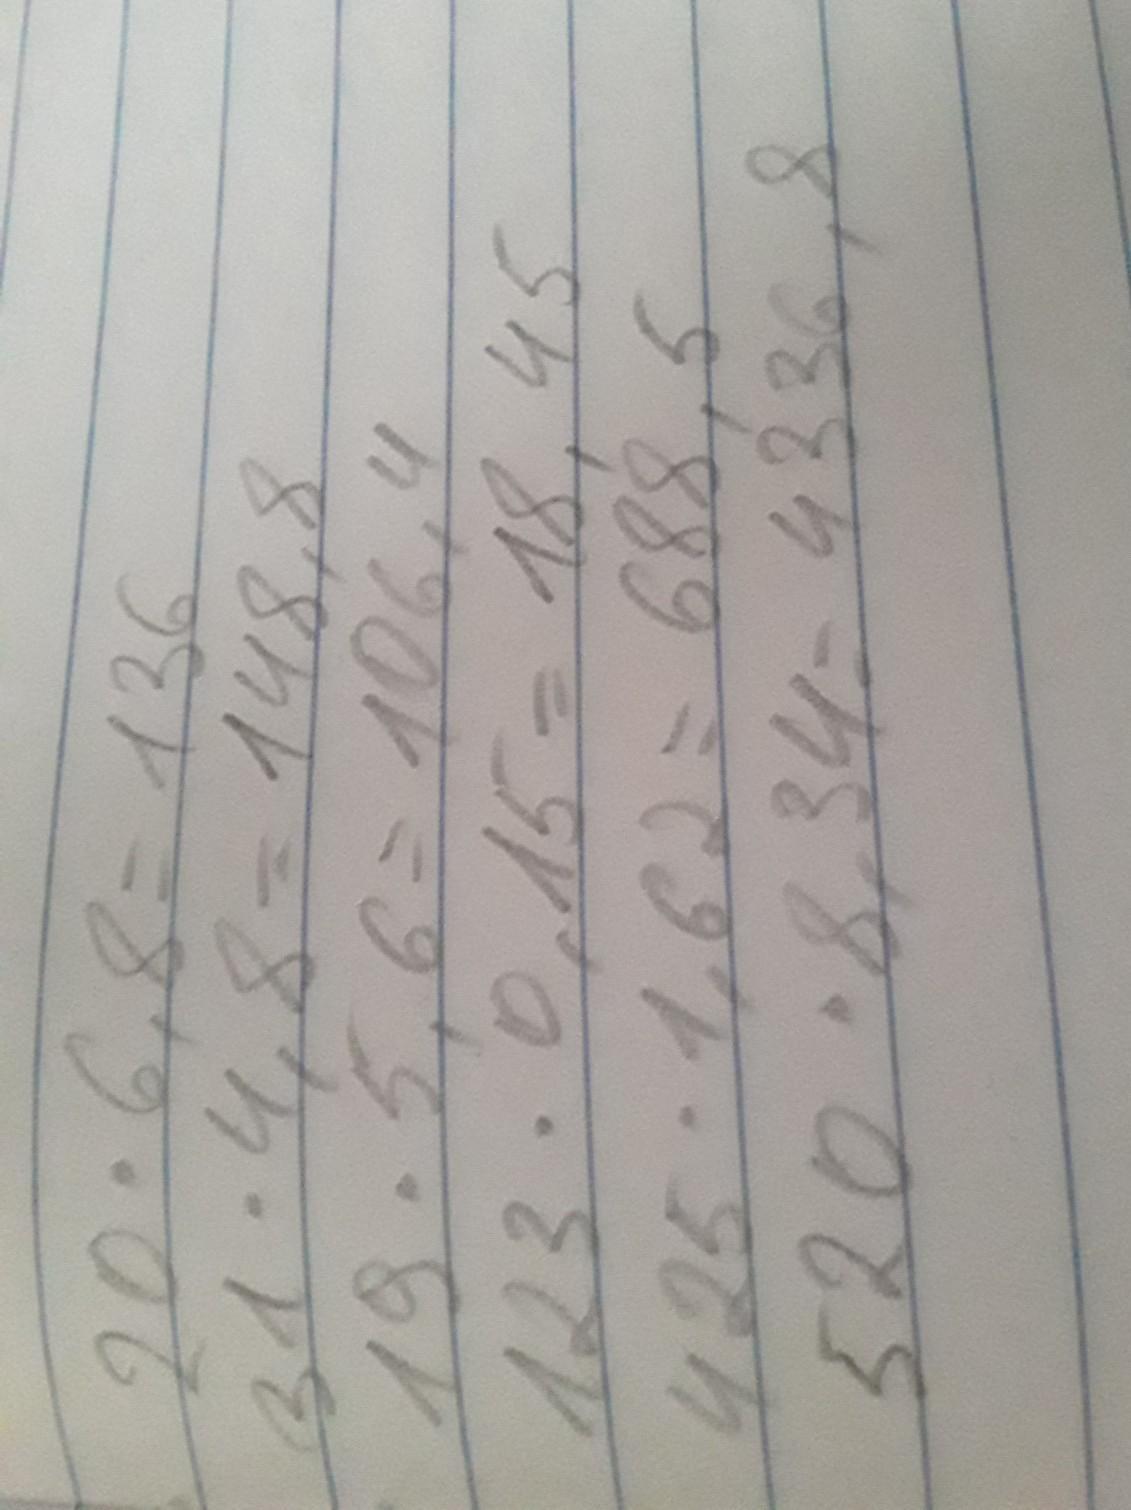 20 · 6,8 = 136
31 · 4,8 = 148,8
19 · 5,6 = 106,4
123 · 0,15 = 18,45
425 · 1,62 = 688,5
520 · 8,34 = 4336,8